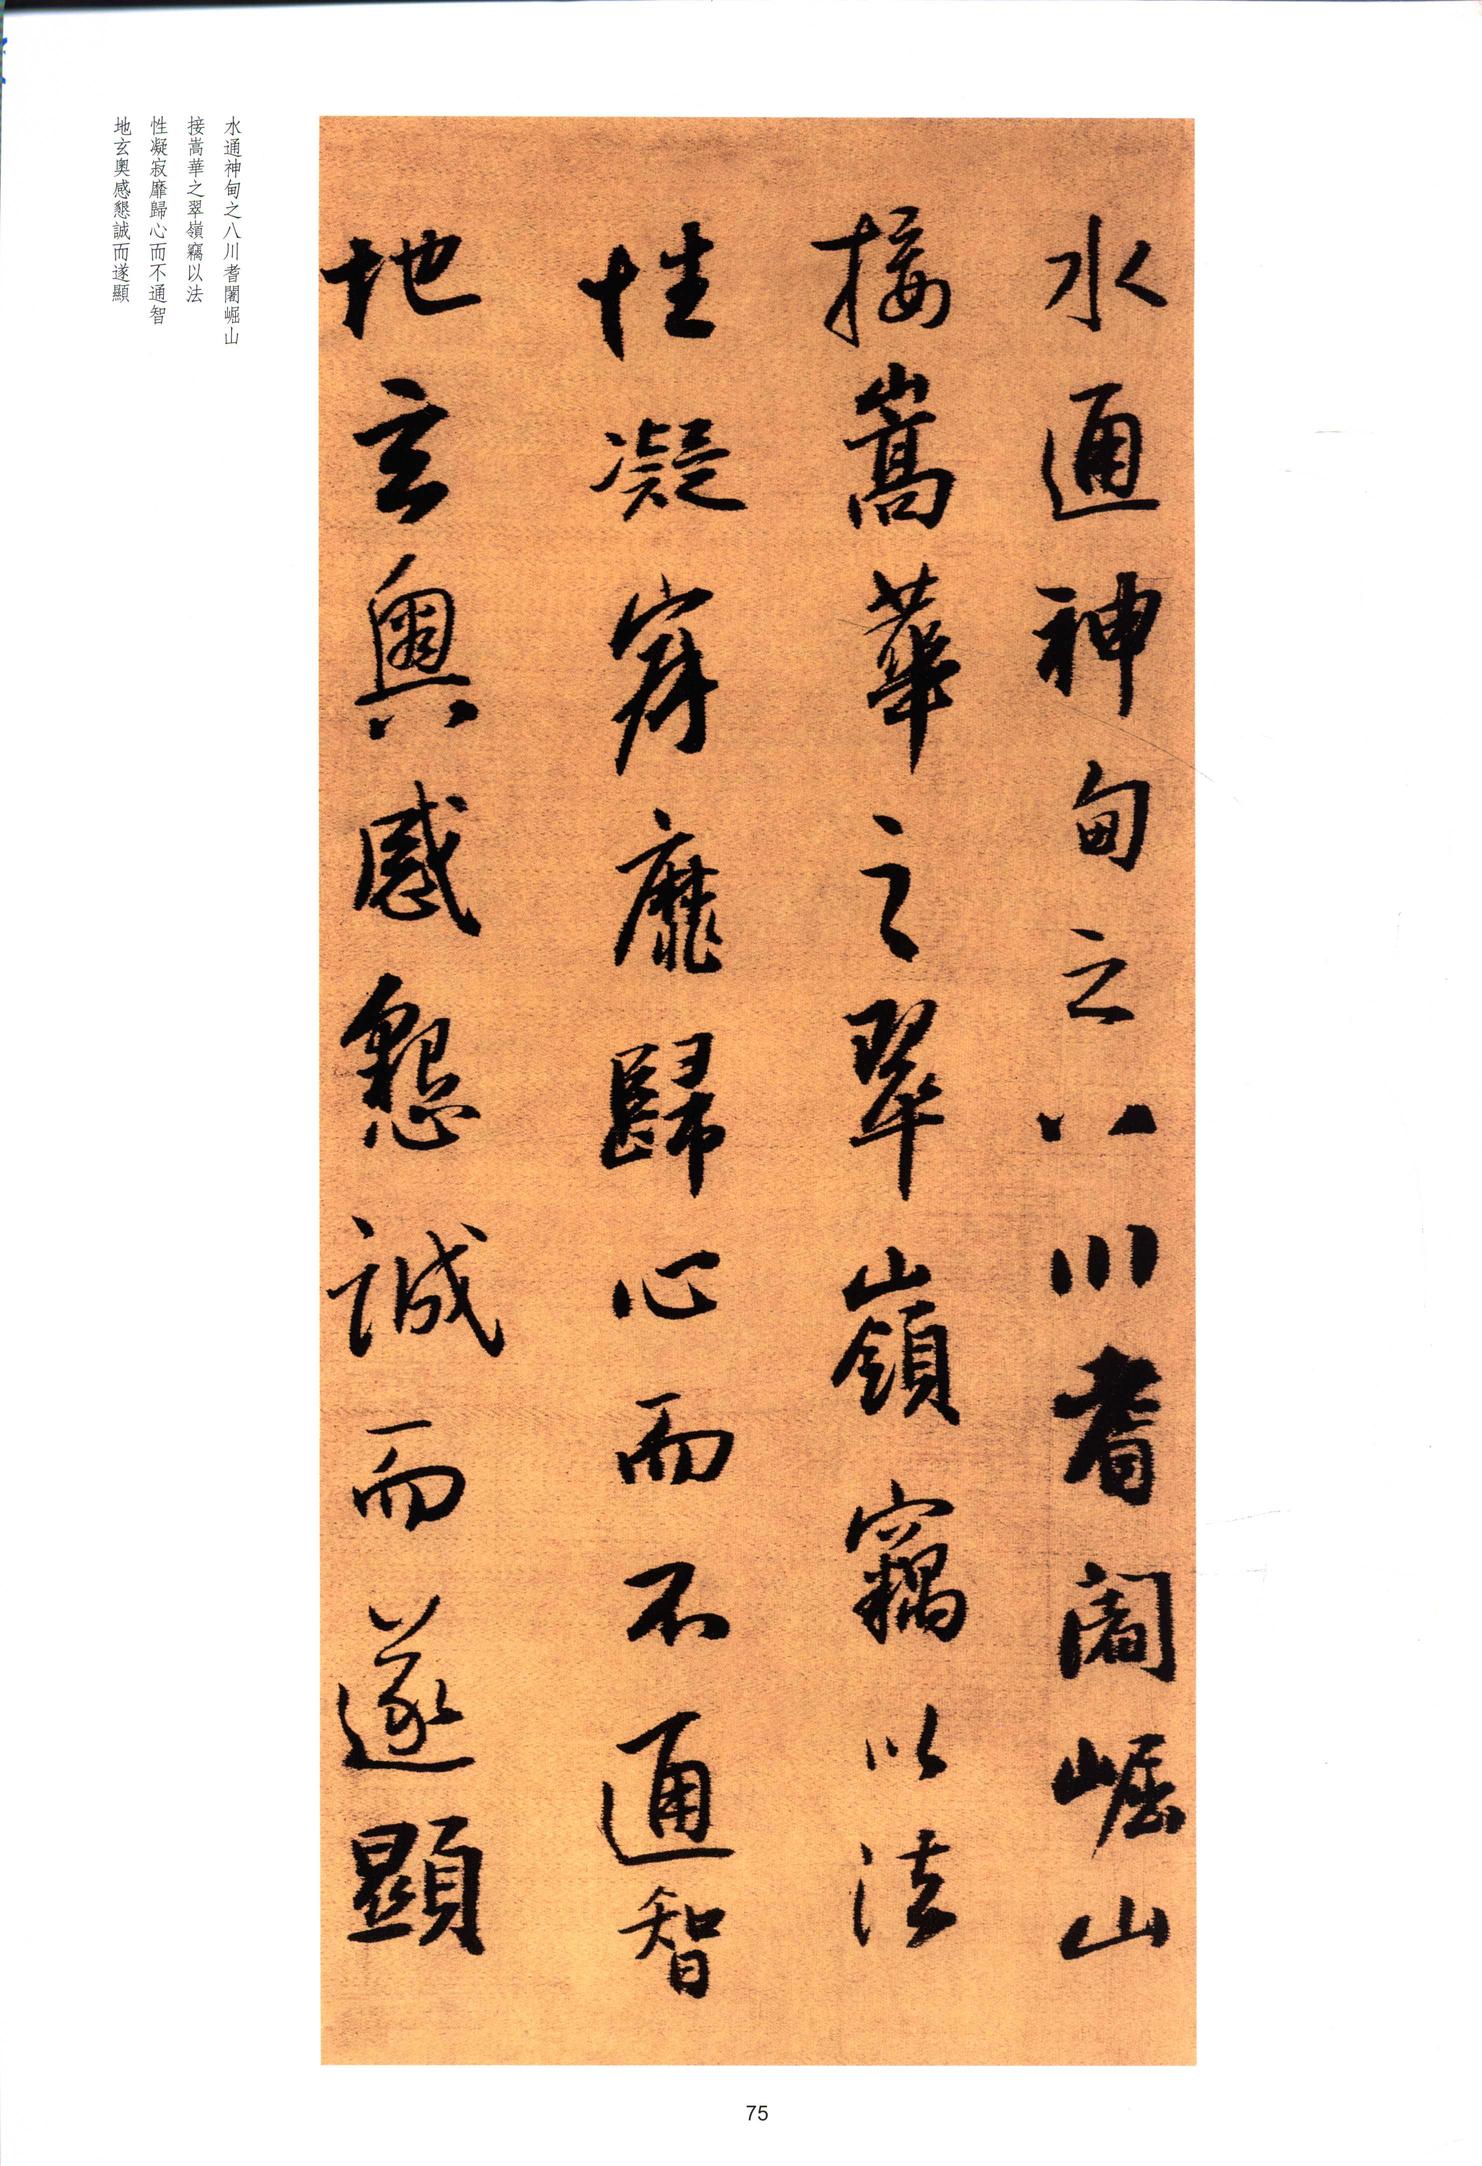 水通神甸之八川耆闍崛山
接嵩華之翠嶺竊以法
性凝寂靡歸心而不通智
地玄奧感懇誠而遂顯
水通神甸之八川耆闍崛山
接嵩華之翠嶺竊以法
性凝寂靡歸心而不通智
地玄奧感懇誠而遂顯
75